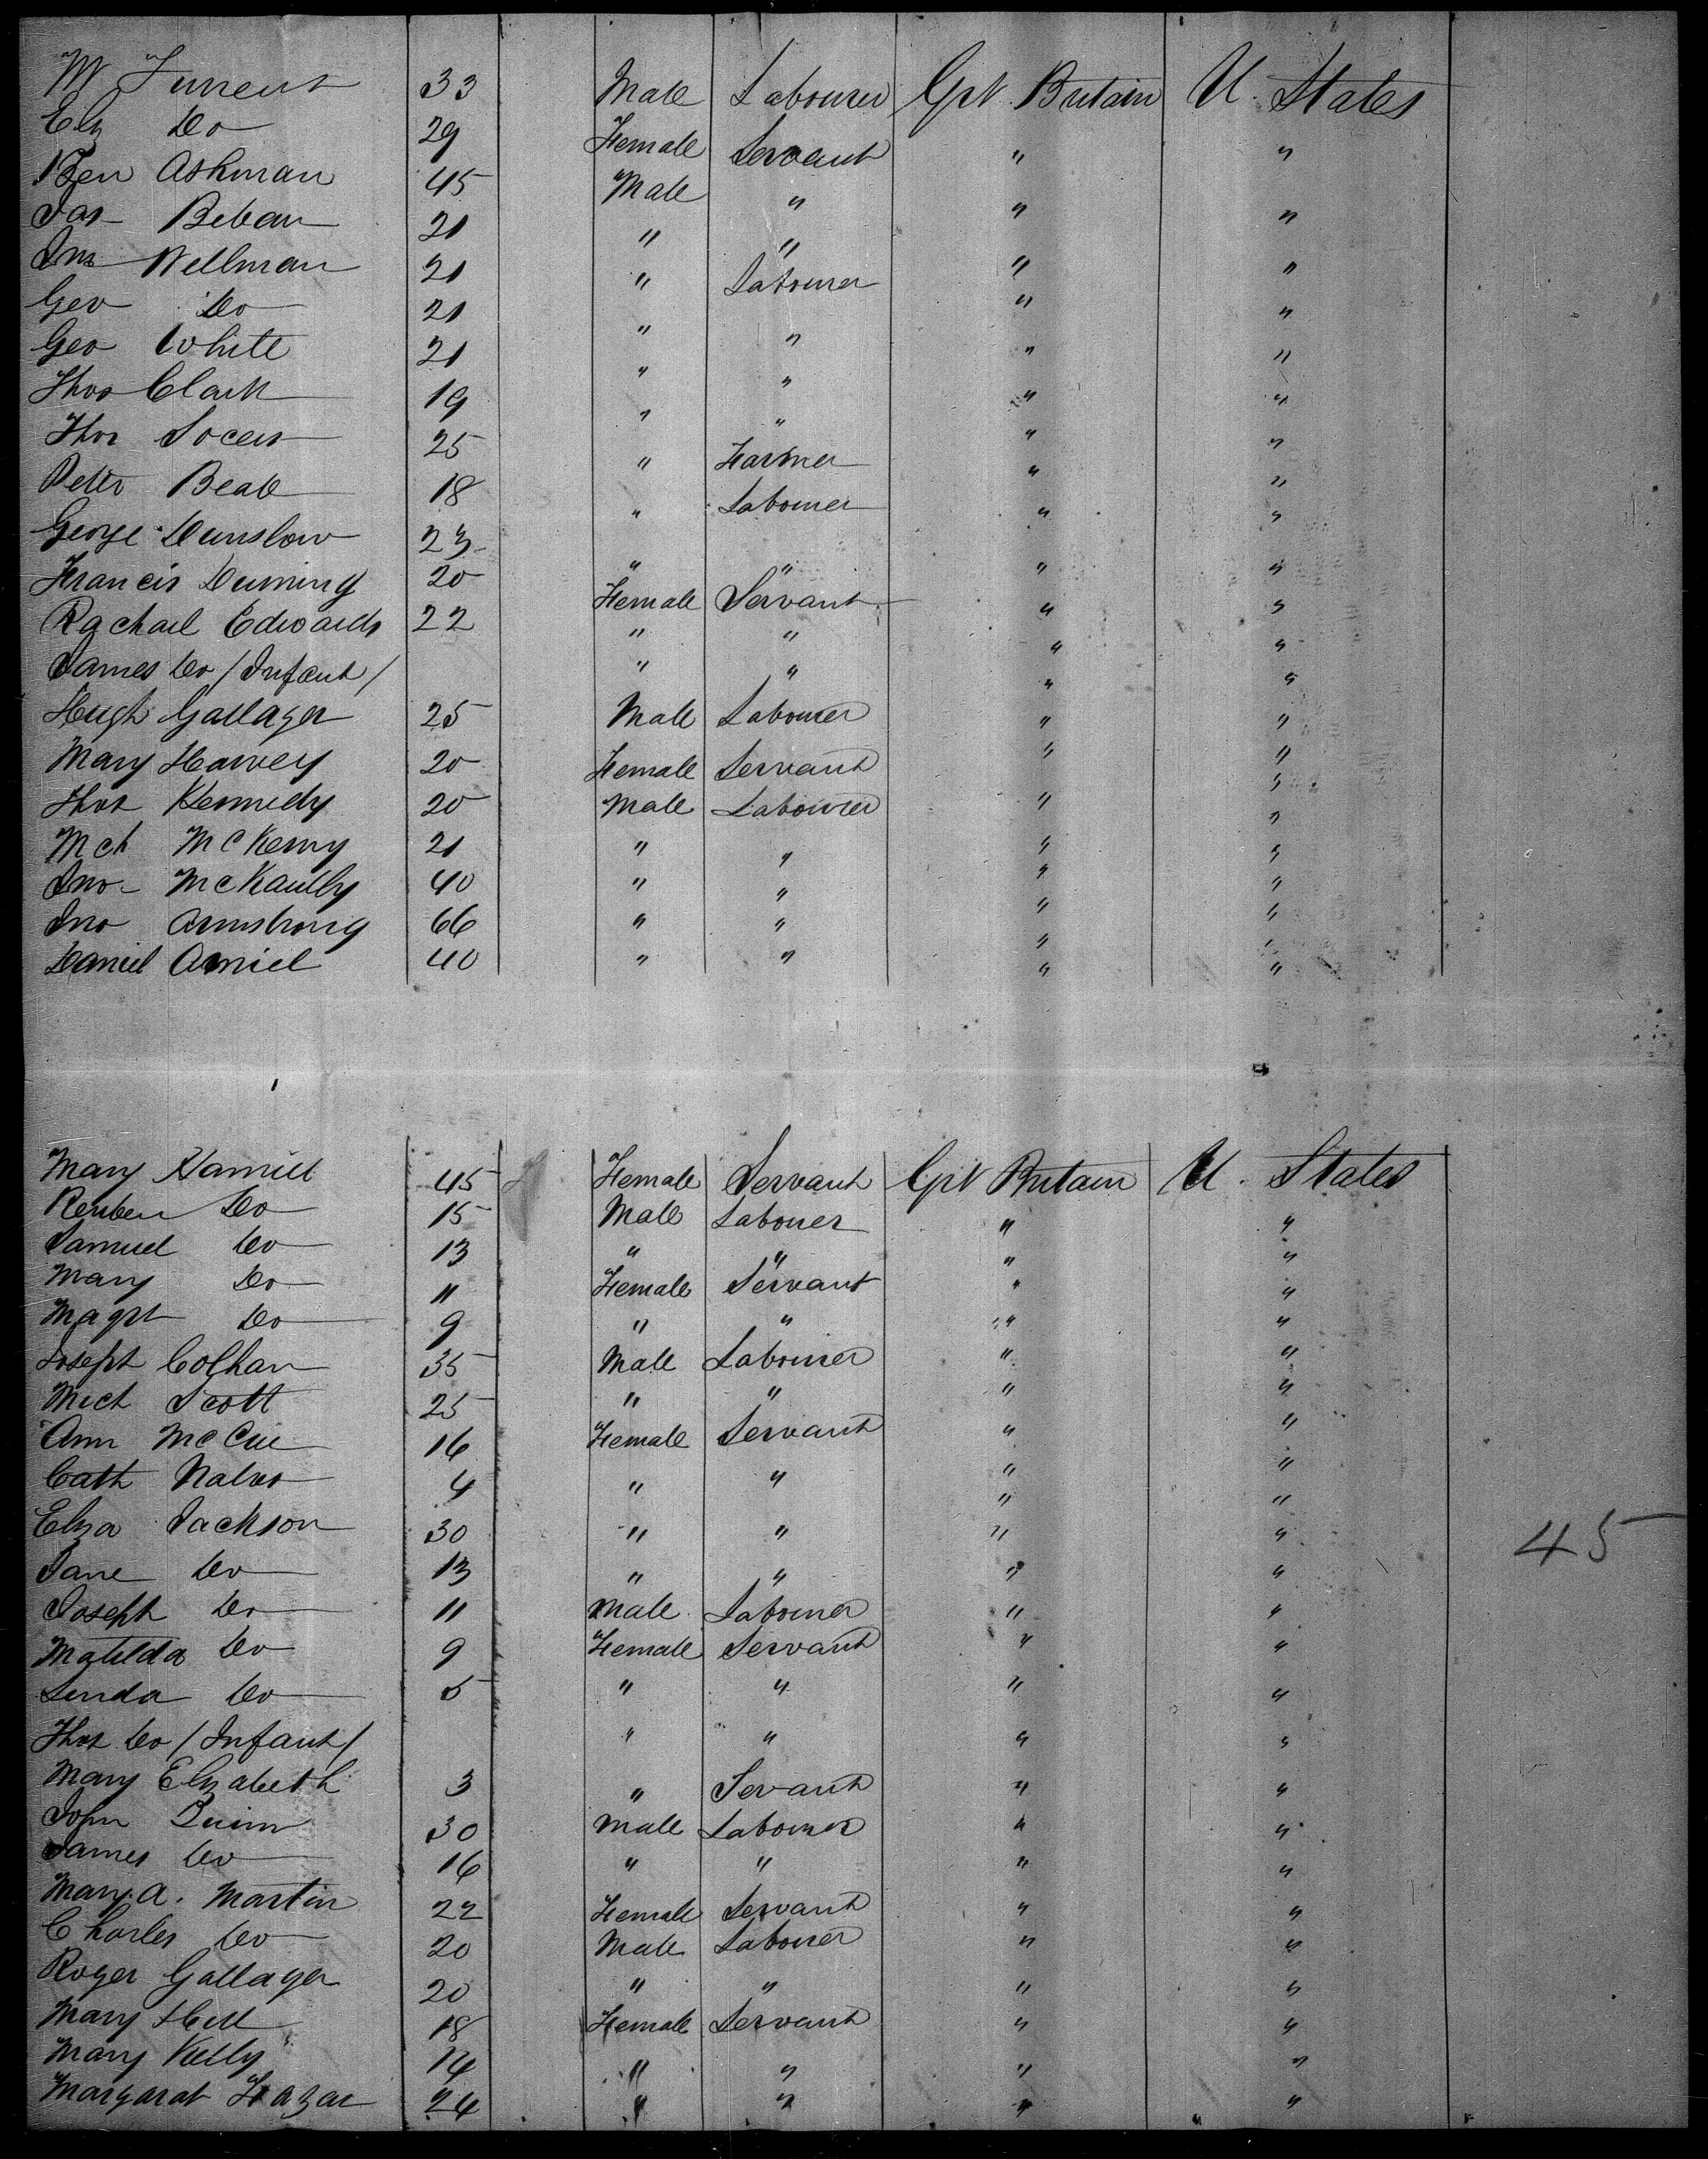 W Turrent 33 Male Labourer Grt Britain U. States
Elz Do 29 Female Servant " "
Ben Ashman 45 Male " " "
Jas Beban 21 " " " "
Jno Wellman 21 " Labourer " "
Geo Do 21 " " " "
Geo White 21 " " " "
Thos Clark 19 " " " "
Thos 25 " Farmer " "
Peter Beale 18 " Labourer " "
George Dunslow 23 " " " "
Francis Duming 20 Female Servant " "
Rachael Edwards 22 " " " "
James Do / Infant / " " " "
Hugh Gallager 25 Male Labourer " "
Mary Harvey 20 Female Servant " "
Thos Kennedy 20 Male Labourer " "
Mch McKenny 21 " " " "
Jno McKaully 40 " " " "
Jno Armstrong 66 " " " "
Daniel Amiel 40 " " " "
Mary Hamill 45 Female Servant Grt Britain U. States
Reuben Do 15 Male Labourer " "
Samuel Do 13 " " " "
Mary Do 11 Female Servant " "
Magrt Do 9 " " " "
Joseph Colhan 35 Male Labourer " "
Mich Scott 25 " " " "
Ann McCue 16 Female Servant " "
Cath 4 " " " "
Eliza Jackson 30 " " " "
45
Jane Do 13 " " " "
Joseph Do 11 Male Labourer " "
Matilda Do 9 Female Servant " "
Linda Do 5 " " " "
Thos Do / Infant / " " " "
Mary Elizabeth 3 " Servant " "
John Quinn 30 Male Labourer " "
James Do 16 " " " "
Mary A. Martin 22 Female Servant " "
Charles Do 20 Male Labourer " "
Roger Gallager 20 " " " "
Mary Hill 18 Female Servant " "
Mary Kelly 14 " " " "
Margarat 24 " " " "